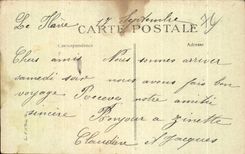 Le Hâvre 17 Septembre
CARTE POSTALE
Correspondance
Adresse
Chers amis Nous sommes arriver
samedi soir nous avons fait bon
voyage Recevez notre amitié
sincère Bonjour a Ginette
Claudine Jacques